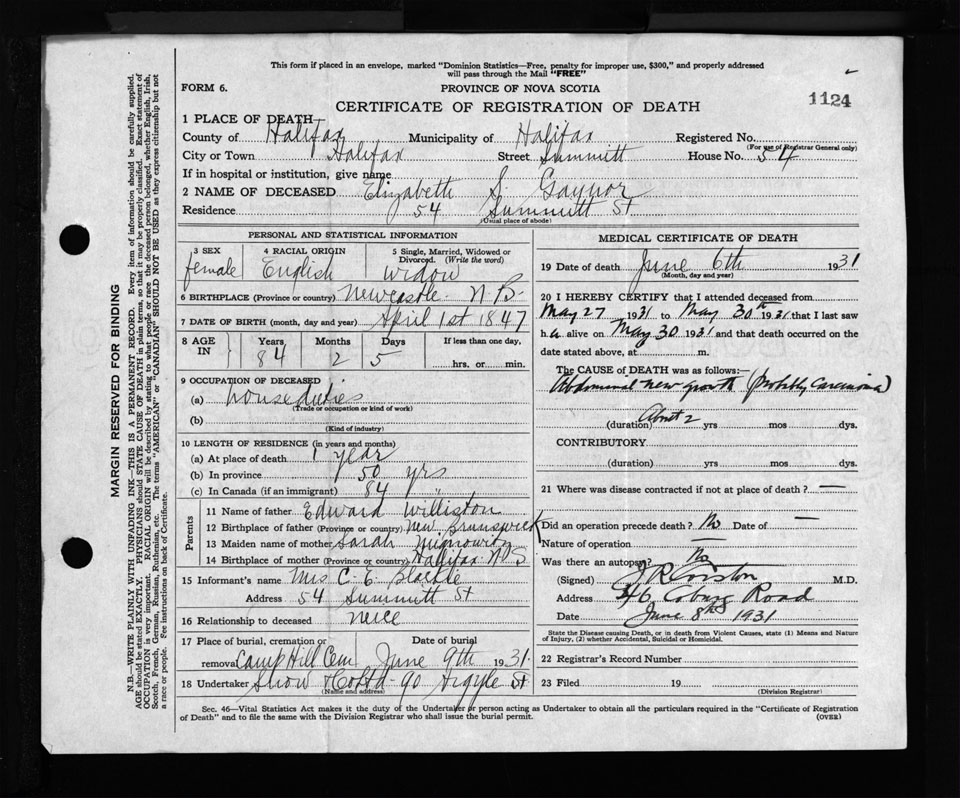 This form if placed in an envelope, marked "Dominion Statistics—Free, penalty for improper use, $300," and properly addressed
will pass through the Mail "FREE"
FORM 6.
PROVINCE OF NOVA SCOTIA
1124
CERTIFICATE OF REGISTRATION OF DEATH
1 PLACE OF DEATH
County of Halifax Municipality of Halifax Registered No.
(For use of Registrar General only)
City or Town Halifax Street Summitt House No. 54
If in hospital or institution, give name
2 NAME OF DECEASED Elizabeth S. Gaynor
Residence 54 Summitt St
(Usual place of abode)
PERSONAL AND STATISTICAL INFORMATION
3 SEX 4 RACIAL ORIGIN 5 Single, Married, Widowed or
Divorced. (Write the word)
female English widow
6 BIRTHPLACE (Province or country) Newcastle N B
7 DATE OF BIRTH (month, day and year) April 1st 1847
8 AGE IN Years Months Days If less than one day,
84 2 5 hrs. or min.
9 OCCUPATION OF DECEASED
(a) houseduties
(Trade or occupation or kind of work)
(b)
(Kind of industry)
10 LENGTH OF RESIDENCE (in years and months)
(a) At place of death 1 year
(b) In province 50 yrs
(c) In Canada (if an immigrant) 84 "
Parents
11 Name of father Edward Williston
12 Birthplace of father (Province or country) New Brunswick
13 Maiden name of mother Sarah
14 Birthplace of mother (Province or country) Halifax N S
15 Informant's name Mrs C. E.
Address 54 Summitt St
16 Relationship to deceased neice
17 Place of burial, cremation or Date of burial
removal Camp Hill Cem June 9th 1931
18 Undertaker Snow & Co Ltd 90 Argyle St
(Name and address)
MEDICAL CERTIFICATE OF DEATH
19 Date of death June 6th 1931
(Month, day and year)
20 I HEREBY CERTIFY that I attended deceased from
May 27 1931 to May 30th 1931 that I last saw
h alive on May 30 1931 and that death occurred on the
date stated above, at m.
The CAUSE of DEATH was as follows:—
Abdominal new growth (probably carcinoma)
(duration) About 2 yrs mos dys.
CONTRIBUTORY
(duration) yrs mos dys.
21 Where was disease contracted if not at place of death? —
Did an operation precede death? No Date of —
Nature of operation —
Was there an autopsy? No
(Signed) J R Corston M.D.
Address 46 Coburg Road
Date June 8th 1931
State the Disease causing Death, or in death from Violent Causes, state (1) Means and Nature
of Injury, (2) whether Accidental, Suicidal or Homicidal.
22 Registrar's Record Number
23 Filed 19
(Division Registrar)
Sec. 46—Vital Statistics Act makes it the duty of the Undertaker or person acting as Undertaker to obtain all the particulars required in the "Certificate of Registration
of Death" and to file the same with the Division Registrar who shall issue the burial permit. (OVER)
MARGIN RESERVED FOR BINDING
N.B.—WRITE PLAINLY WITH UNFADING INK—THIS IS A PERMANENT RECORD. Every item of information should be carefully supplied.
AGE should be stated EXACTLY. PHYSICIANS should STATE CAUSE OF DEATH in plain terms, so that it may be properly classified. Exact statement of
OCCUPATION is very important. RACIAL ORIGIN will be described by stating to what people or race the deceased person belonged, whether English, Irish,
Scotch, French, German, Russian, Ruthenian, etc. The terms "AMERICAN" or "CANADIAN" SHOULD NOT BE USED as they express citizenship but not
a race or people. See instructions on back of Certificate.